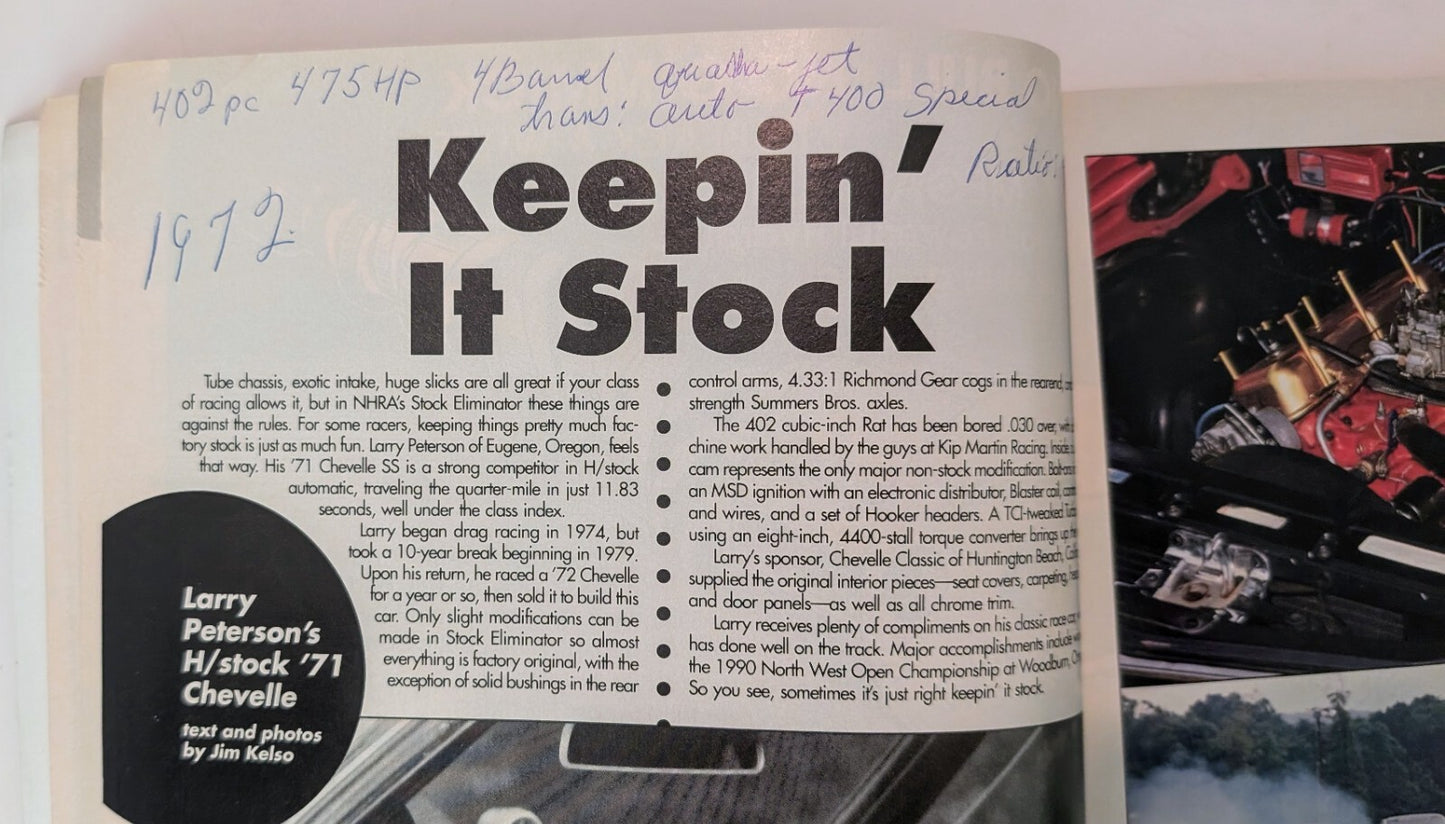 402 pc 475 HP 4 Barrel quadra-jet
trans: auto T400 Special
Ratio:
1972
Keepin'
It Stock
Tube chassis, exotic intake, huge slicks are all great if your class
of racing allows it, but in NHRA's Stock Eliminator these things are
against the rules. For some racers, keeping things pretty much fac-
tory stock is just as much fun. Larry Peterson of Eugene, Oregon, feels
that way. His '71 Chevelle SS is a strong competitor in H/stock
automatic, traveling the quarter-mile in just 11.83
seconds, well under the class index.
Larry began drag racing in 1974, but
took a 10-year break beginning in 1979.
Upon his return, he raced a '72 Chevelle
for a year or so, then sold it to build this
car. Only slight modifications can be
made in Stock Eliminator so almost
everything is factory original, with the
exception of solid bushings in the rear
control arms, 4.33:1 Richmond Gear cogs in the rearend,
strength Summers Bros. axles.
The 402 cubic-inch Rat has been bored .030 over,
chine work handled by the guys at Kip Martin Racing. Inside
cam represents the only major non-stock modification.
an MSD ignition with an electronic distributor, Blaster coil,
and wires, and a set of Hooker headers. A TCI-tweaked
using an eight-inch, 4400-stall torque converter brings up
Larry's sponsor, Chevelle Classic of Huntington Beach,
supplied the original interior pieces—seat covers, carpeting,
and door panels—as well as all chrome trim.
Larry receives plenty of compliments on his classic race car
has done well on the track. Major accomplishments include
the 1990 North West Open Championship at Woodburn,
So you see, sometimes it's just right keepin' it stock.
Larry
Peterson's
H/stock '71
Chevelle
text and photos
by Jim Kelso